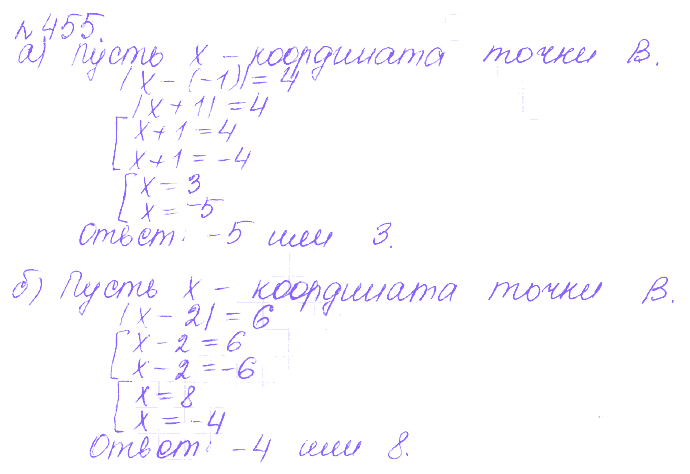 №455.
а) Пусть x – координата точки B.
|x – (–1)| = 4
|x + 1| = 4
[ x + 1 = 4
x + 1 = –4
[ x = 3
x = –5
Ответ: –5 или 3.
б) Пусть x – координата точки B.
|x – 2| = 6
[ x – 2 = 6
x – 2 = –6
[ x = 8
x = –4
Ответ: –4 или 8.